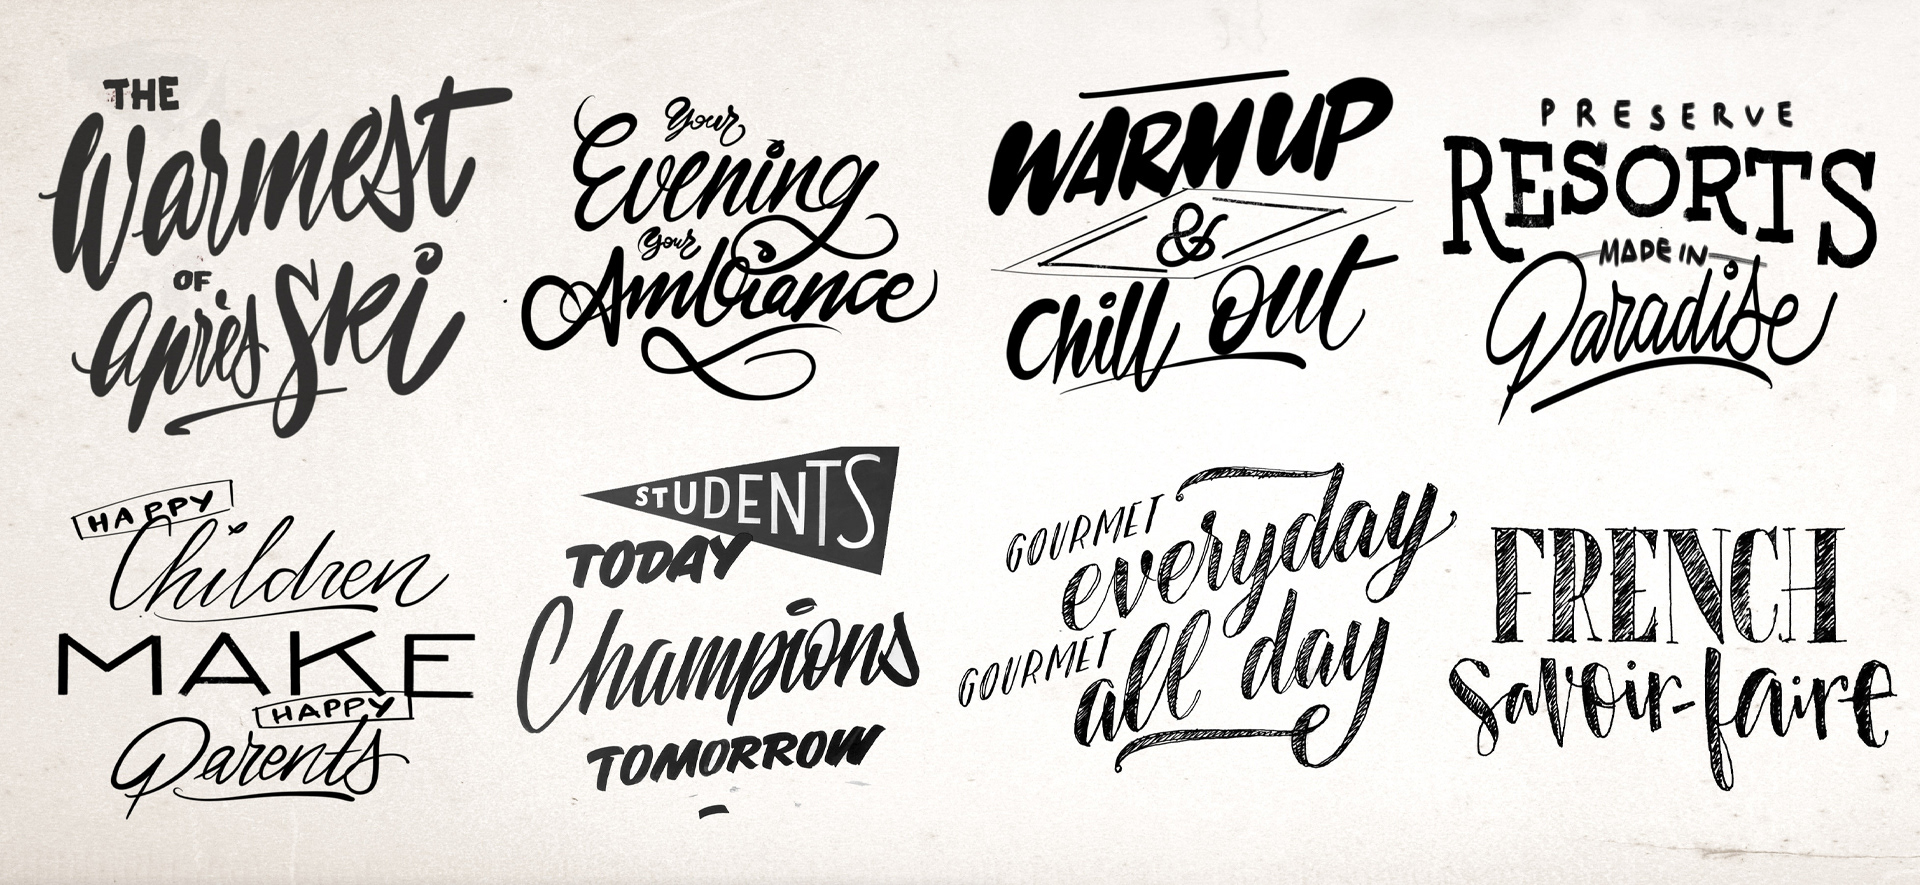 THE
Warmest
OF
après Ski
Your
Evening
Your
Ambiance
WARM UP
&
Chill Out
PRESERVE
RESORTS
MADE IN
Paradise
HAPPY
Children
MAKE
HAPPY
Parents
STUDENTS
TODAY
Champions
TOMORROW
GOURMET
everyday
GOURMET
all day
FRENCH
savoir-faire